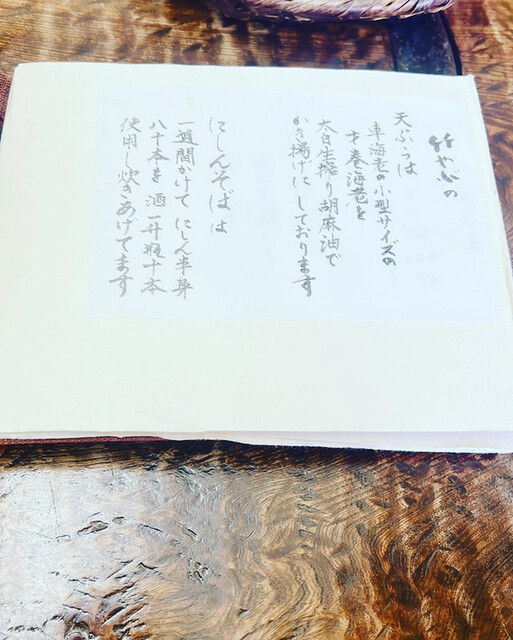 竹やぶの
天ぷらは
車海老の小型サイズの
才巻海老を
太白生搾り胡麻油で
かき揚げにしております
にしんそばは
一週間かけてにしん半身
八十本を酒一升瓶十本
使用し炊きあげてます